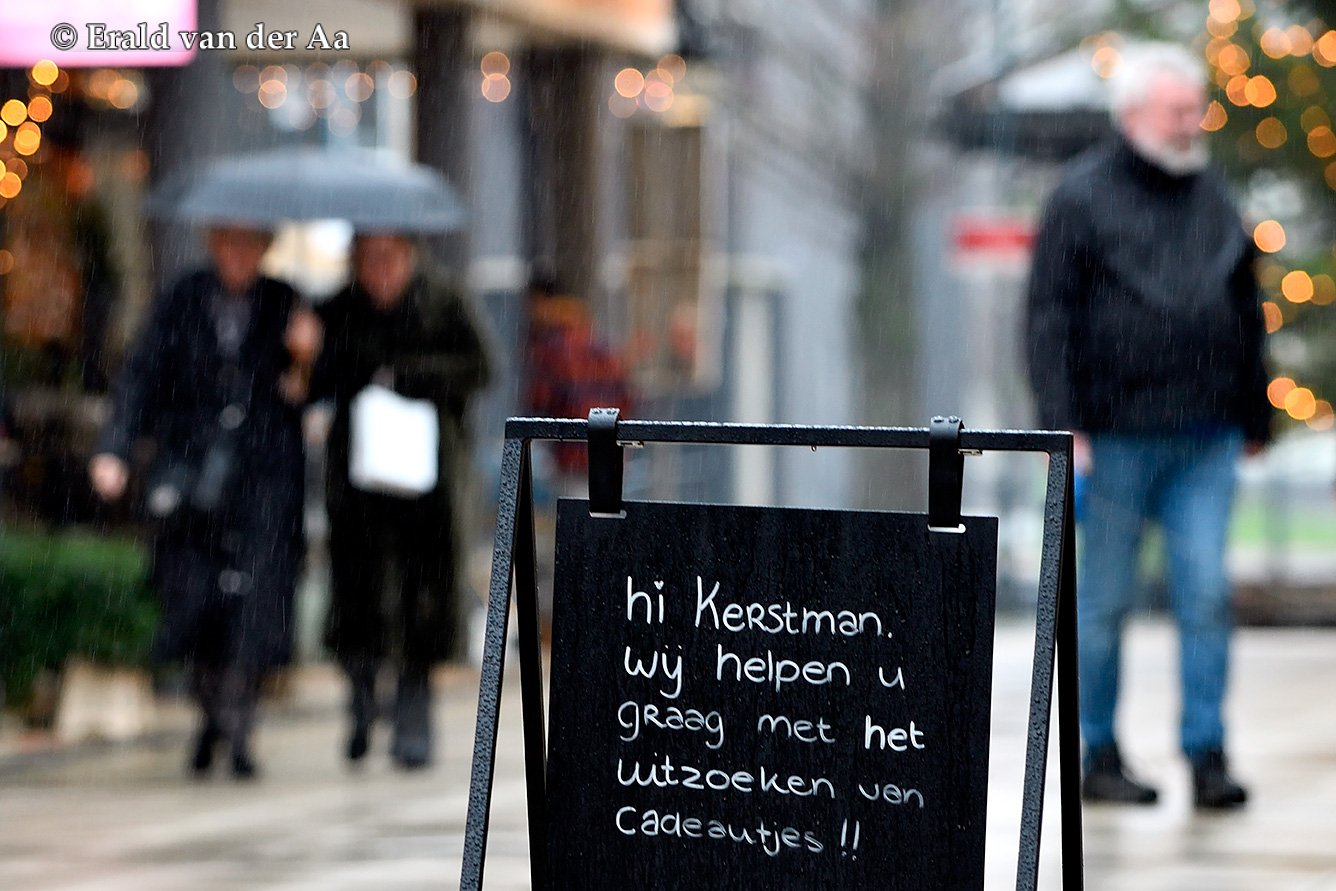 © Erald van der Aa
hi Kerstman.
wij helpen u
graag met het
uitzoeken van
cadeautjes !!